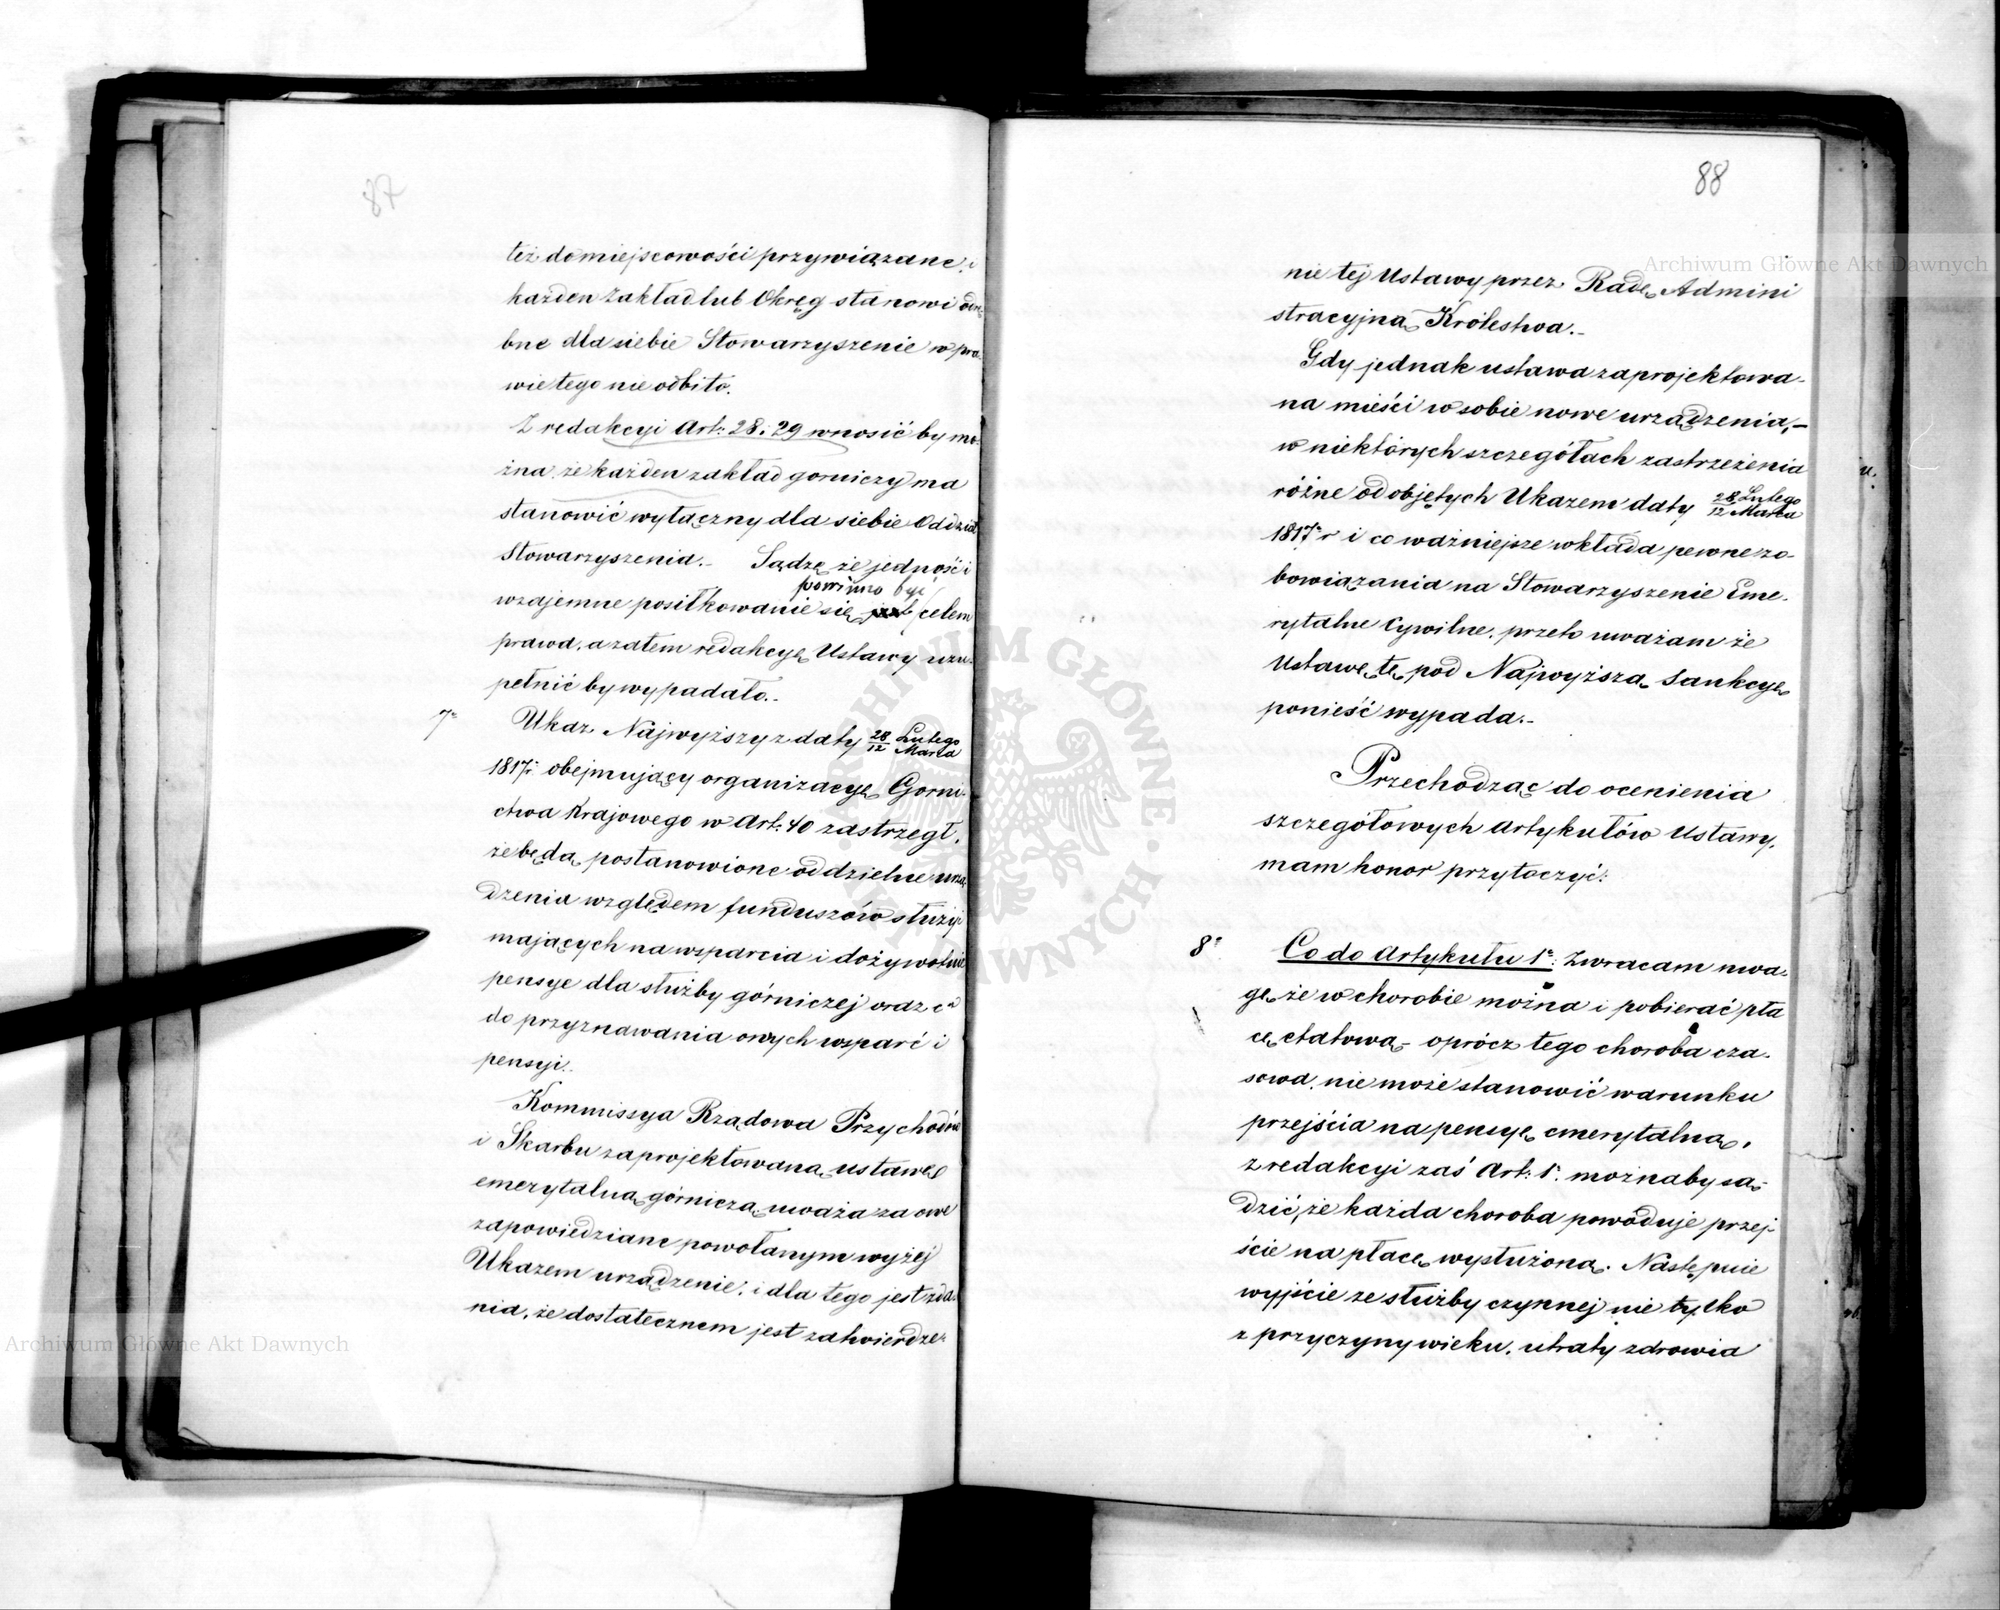 87
też do miejscowości przywiązane, i
każden Zakład lub Okręg stanowi odrę
bne dla siebie Stowarzyszenie w pra
wie tego nie odbito.
Z redakcyi Art: 28 i 29 wnosić by mo-
żna, że każden zakład gorniczy ma
stanowić wyłączny dla siebie Oddział
Stowarzyszenia.- Sądzę że jedność i
powinno być
wzajemne posiłkowanie się jest celem
prawa, a zatem redakcyę Ustawy uzu-
pełnić by wypadało.-
7° Ukaz Najwyższy z daty 28/12 Lutego/Marca
1817r. obejmujący organizacyę Gorni-
ctwa Krajowego w Art: 40 zastrzegł,
że będą postanowione oddzielne urzą
dzenia względem funduszów służyć
mających na wsparcia i dożywotnie
pensye dla służby górniczej oraz co
do przyznawania onych wsparć i
pensyi.
Kommissya Rządowa Przychodów
i Skarbu zaprojektowaną ustawę
emerytalną górniczą uważa za owe
zapowiedziane powołanym wyżej
Ukazem urządzenie, i dla tego jest zda-
nia, że dostatecznem jest zatwierdze-
88
nie tej Ustawy przez Radę Admini
stracyjną Królestwa.-
Gdy jednak ustawa zaprojektowa-
na mieści w sobie nowe urządzenia,-
w niektórych szczegółach zastrzeżenia
różne od objętych Ukazem daty 28/12 Lutego/Marca
1817r i co ważniejsze wkłada pewne zo-
bowiązania na Stowarzyszenie Eme-
rytalne Cywilne, przeto uważam że
Ustawę tę pod Najwyższą Sankcyę
ponieść wypada.-
Przechodząc do ocenienia
szczegółowych artykułów Ustawy,
mam honor przytoczyć:
8° Co do Artykułu 1°: Zwracam uwa-
gę, że w chorobie można i pobierać pła
cę etatową - oprócz tego choroba cza-
sowa, nie może stanowić warunku
przejścia na pensyę emerytalną,
z redakcyi zaś Art: 1°. możnaby są-
dzić, że każda choroba powoduje przej-
ście na płacę wysłużoną. Następnie
wyjście ze służby czynnej nie tylko
z przyczyny wieku, utraty zdrowia
Archiwum Główne Akt Dawnych
Archiwum Główne Akt Dawnych
ARCHIWUM GŁÓWNE AKT DAWNYCH